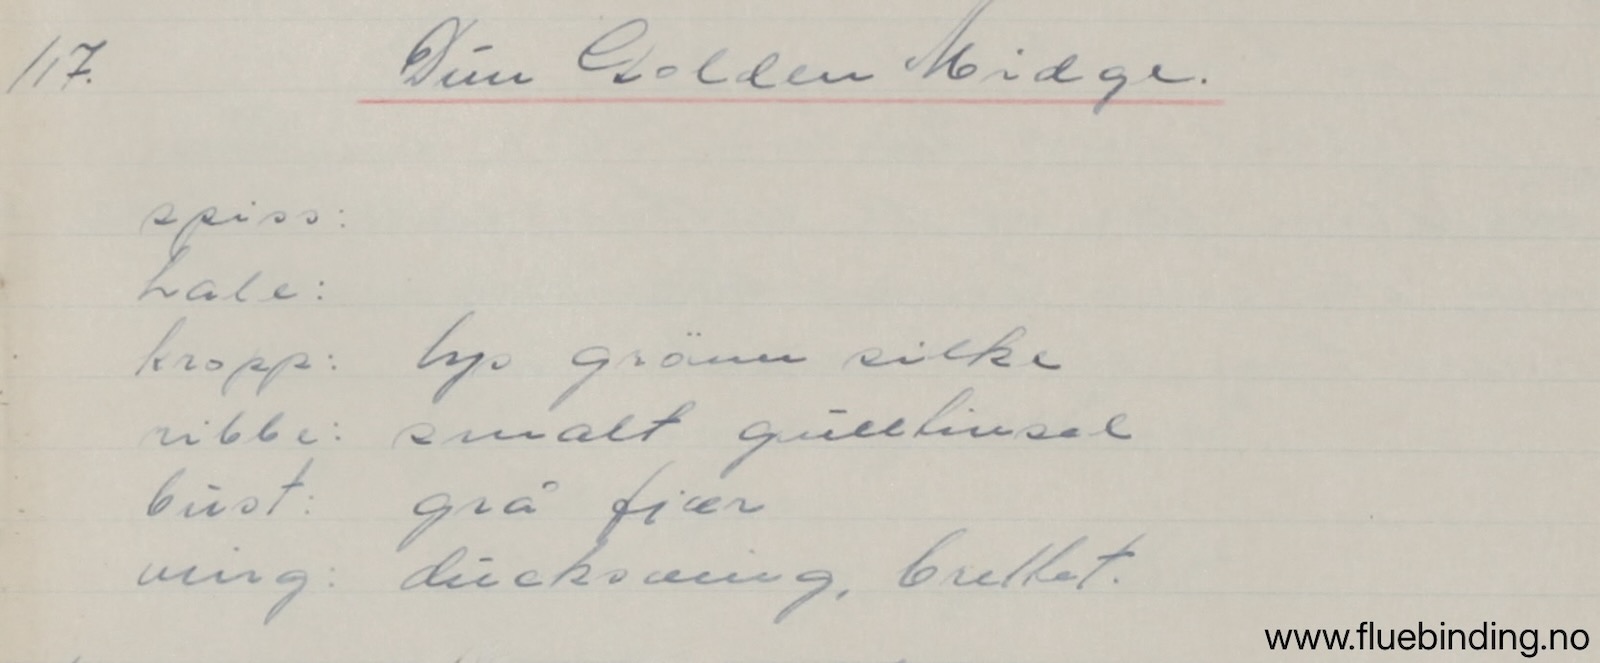 117. Dun Golden Midge.
spiss:
hale:
kropp: lys grönn silke
ribbe: smalt gulltinsel
bust: grå fjær
ving: duckswing, brettet.
www.fluebinding.no